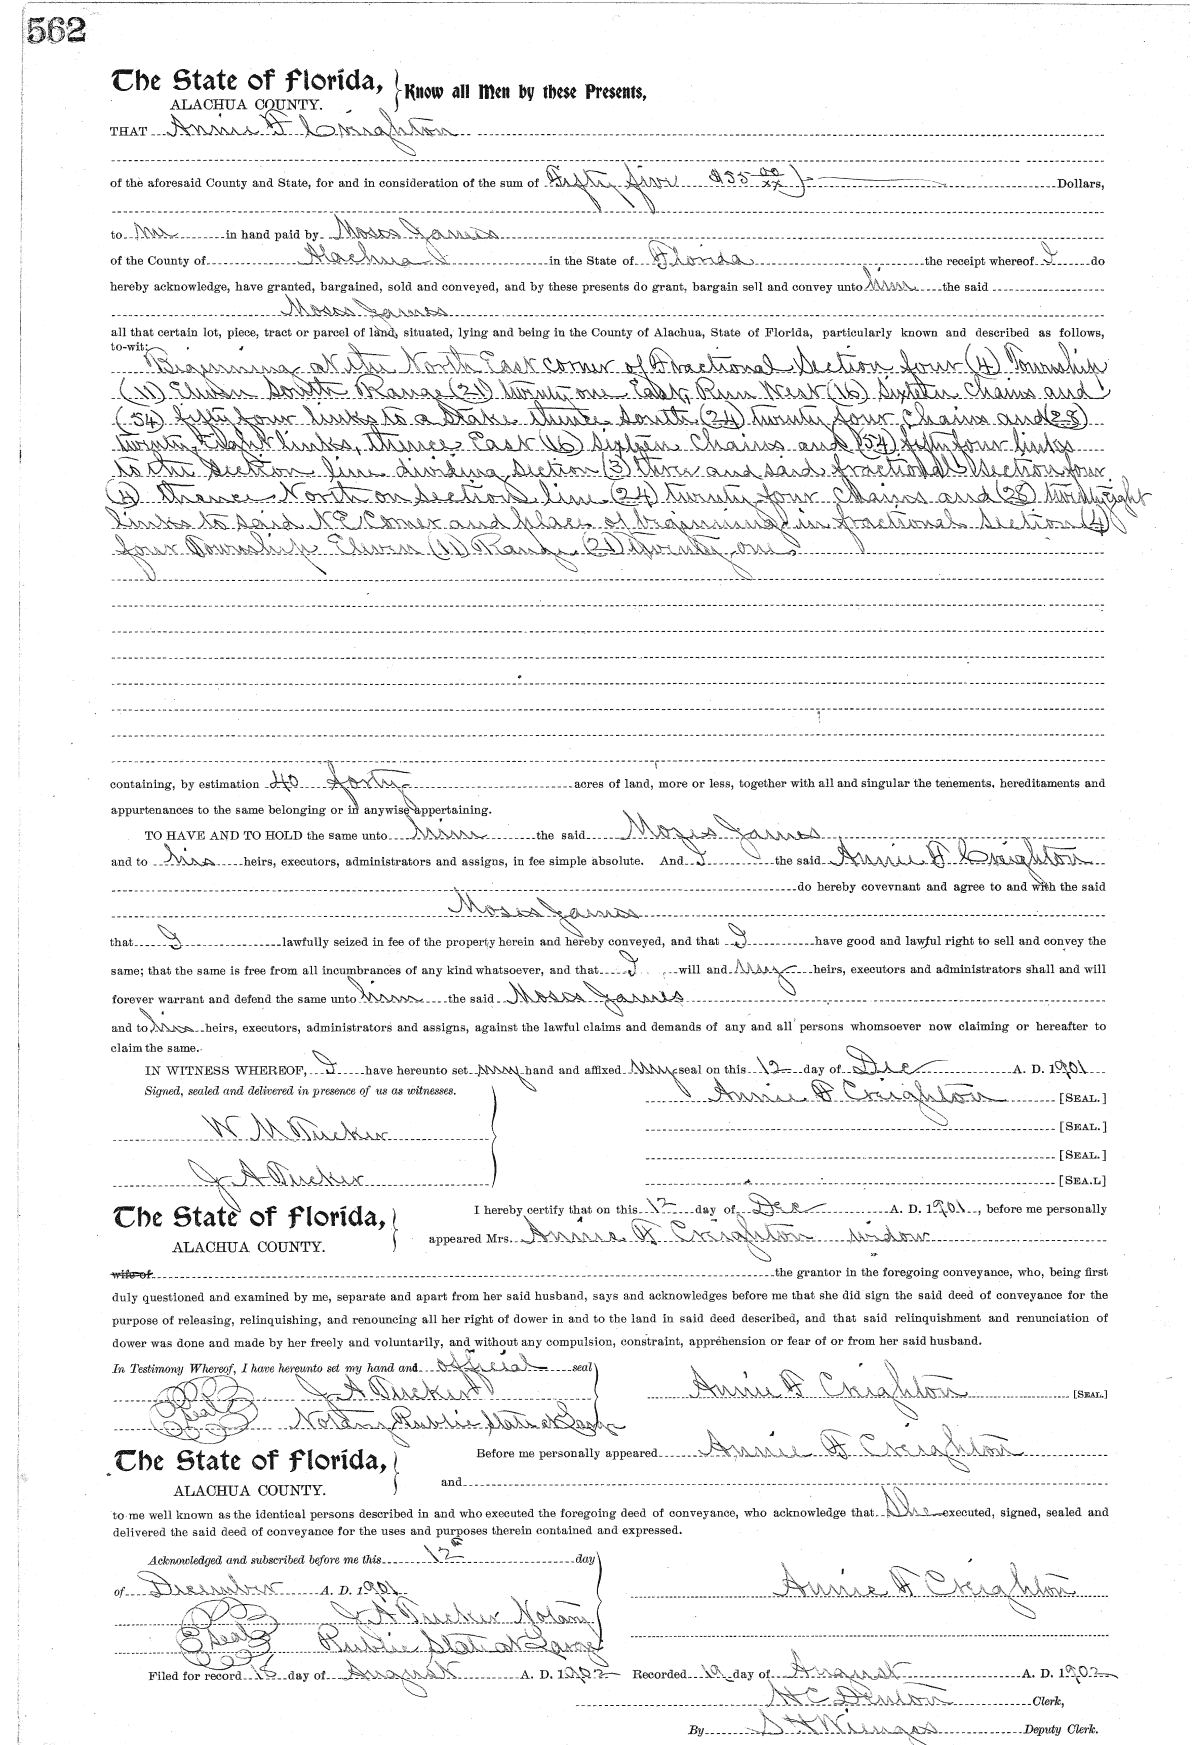 562
The State of Florida, Know all Men by these Presents,
ALACHUA COUNTY.
THAT Annie F Creighton
of the aforesaid County and State, for and in consideration of the sum of Fifty five $55 00/xx) Dollars,
to me in hand paid by Moses James
of the County of Alachua in the State of Florida the receipt whereof I do
hereby acknowledge, have granted, bargained, sold and conveyed, and by these presents do grant, bargain sell and convey unto him the said
Moses James
all that certain lot, piece, tract or parcel of land, situated, lying and being in the County of Alachua, State of Florida, particularly known and described as follows,
to-wit:
Beginning at the North East corner of Fractional Section four (4) Township
(11) Eleven South Range (21) twenty one East, Run West (16) Sixteen Chains and
(54) fifty four links to a Stake thence South (24) twenty four Chains and (28)
twenty Eight links, thence East (16) Sixteen Chains and (54) fifty four links
to the Section line dividing Section (3) three and said fractional Section four
(4) thence North on section line (24) twenty four Chains and (28) twenty eight
links to said N E Corner and place of beginning in fractional Section (4)
four Township Eleven (11) Range (21) Twenty one
containing, by estimation 40 forty acres of land, more or less, together with all and singular the tenements, hereditaments and
appurtenances to the same belonging or in anywise appertaining.
TO HAVE AND TO HOLD the same unto him the said Moses James
and to his heirs, executors, administrators and assigns, in fee simple absolute. And I the said Annie F Creighton
do hereby covevnant and agree to and with the said
Moses James
that I lawfully seized in fee of the property herein and hereby conveyed, and that I have good and lawful right to sell and convey the
same; that the same is free from all incumbrances of any kind whatsoever, and that I will and my heirs, executors and administrators shall and will
forever warrant and defend the same unto him the said Moses James
and to his heirs, executors, administrators and assigns, against the lawful claims and demands of any and all persons whomsoever now claiming or hereafter to
claim the same.
IN WITNESS WHEREOF, I have hereunto set my hand and affixed my seal on this 12 day of Dec A. D. 1901
Signed, sealed and delivered in presence of us as witnesses. Annie F Creighton [SEAL.]
W M Tucker [SEAL.]
[SEAL.]
J A Tucker [SEA.L]
The State of Florida, I hereby certify that on this 12 day of Dec A. D. 1901, before me personally
ALACHUA COUNTY. appeared Mrs. Annie F Creighton widow
wife of the grantor in the foregoing conveyance, who, being first
duly questioned and examined by me, separate and apart from her said husband, says and acknowledges before me that she did sign the said deed of conveyance for the
purpose of releasing, relinquishing, and renouncing all her right of dower in and to the land in said deed described, and that said relinquishment and renunciation of
dower was done and made by her freely and voluntarily, and without any compulsion, constraint, apprehension or fear of or from her said husband.
In Testimony Whereof, I have hereunto set my hand and official seal
Seal J A Tucker Annie F Creighton [SEAL]
Notary Public State at Large
The State of Florida, Before me personally appeared Annie F Creighton
ALACHUA COUNTY. and
to me well known as the identical persons described in and who executed the foregoing deed of conveyance, who acknowledge that She executed, signed, sealed and
delivered the said deed of conveyance for the uses and purposes therein contained and expressed.
Acknowledged and subscribed before me this 12th day
of December A. D. 1901 Annie F Creighton
J A Tucker Notary
Seal Public State at Large
Filed for record 18 day of August A. D. 1902 Recorded 19 day of August A. D. 1902
H C Denton Clerk,
By Deputy Clerk.